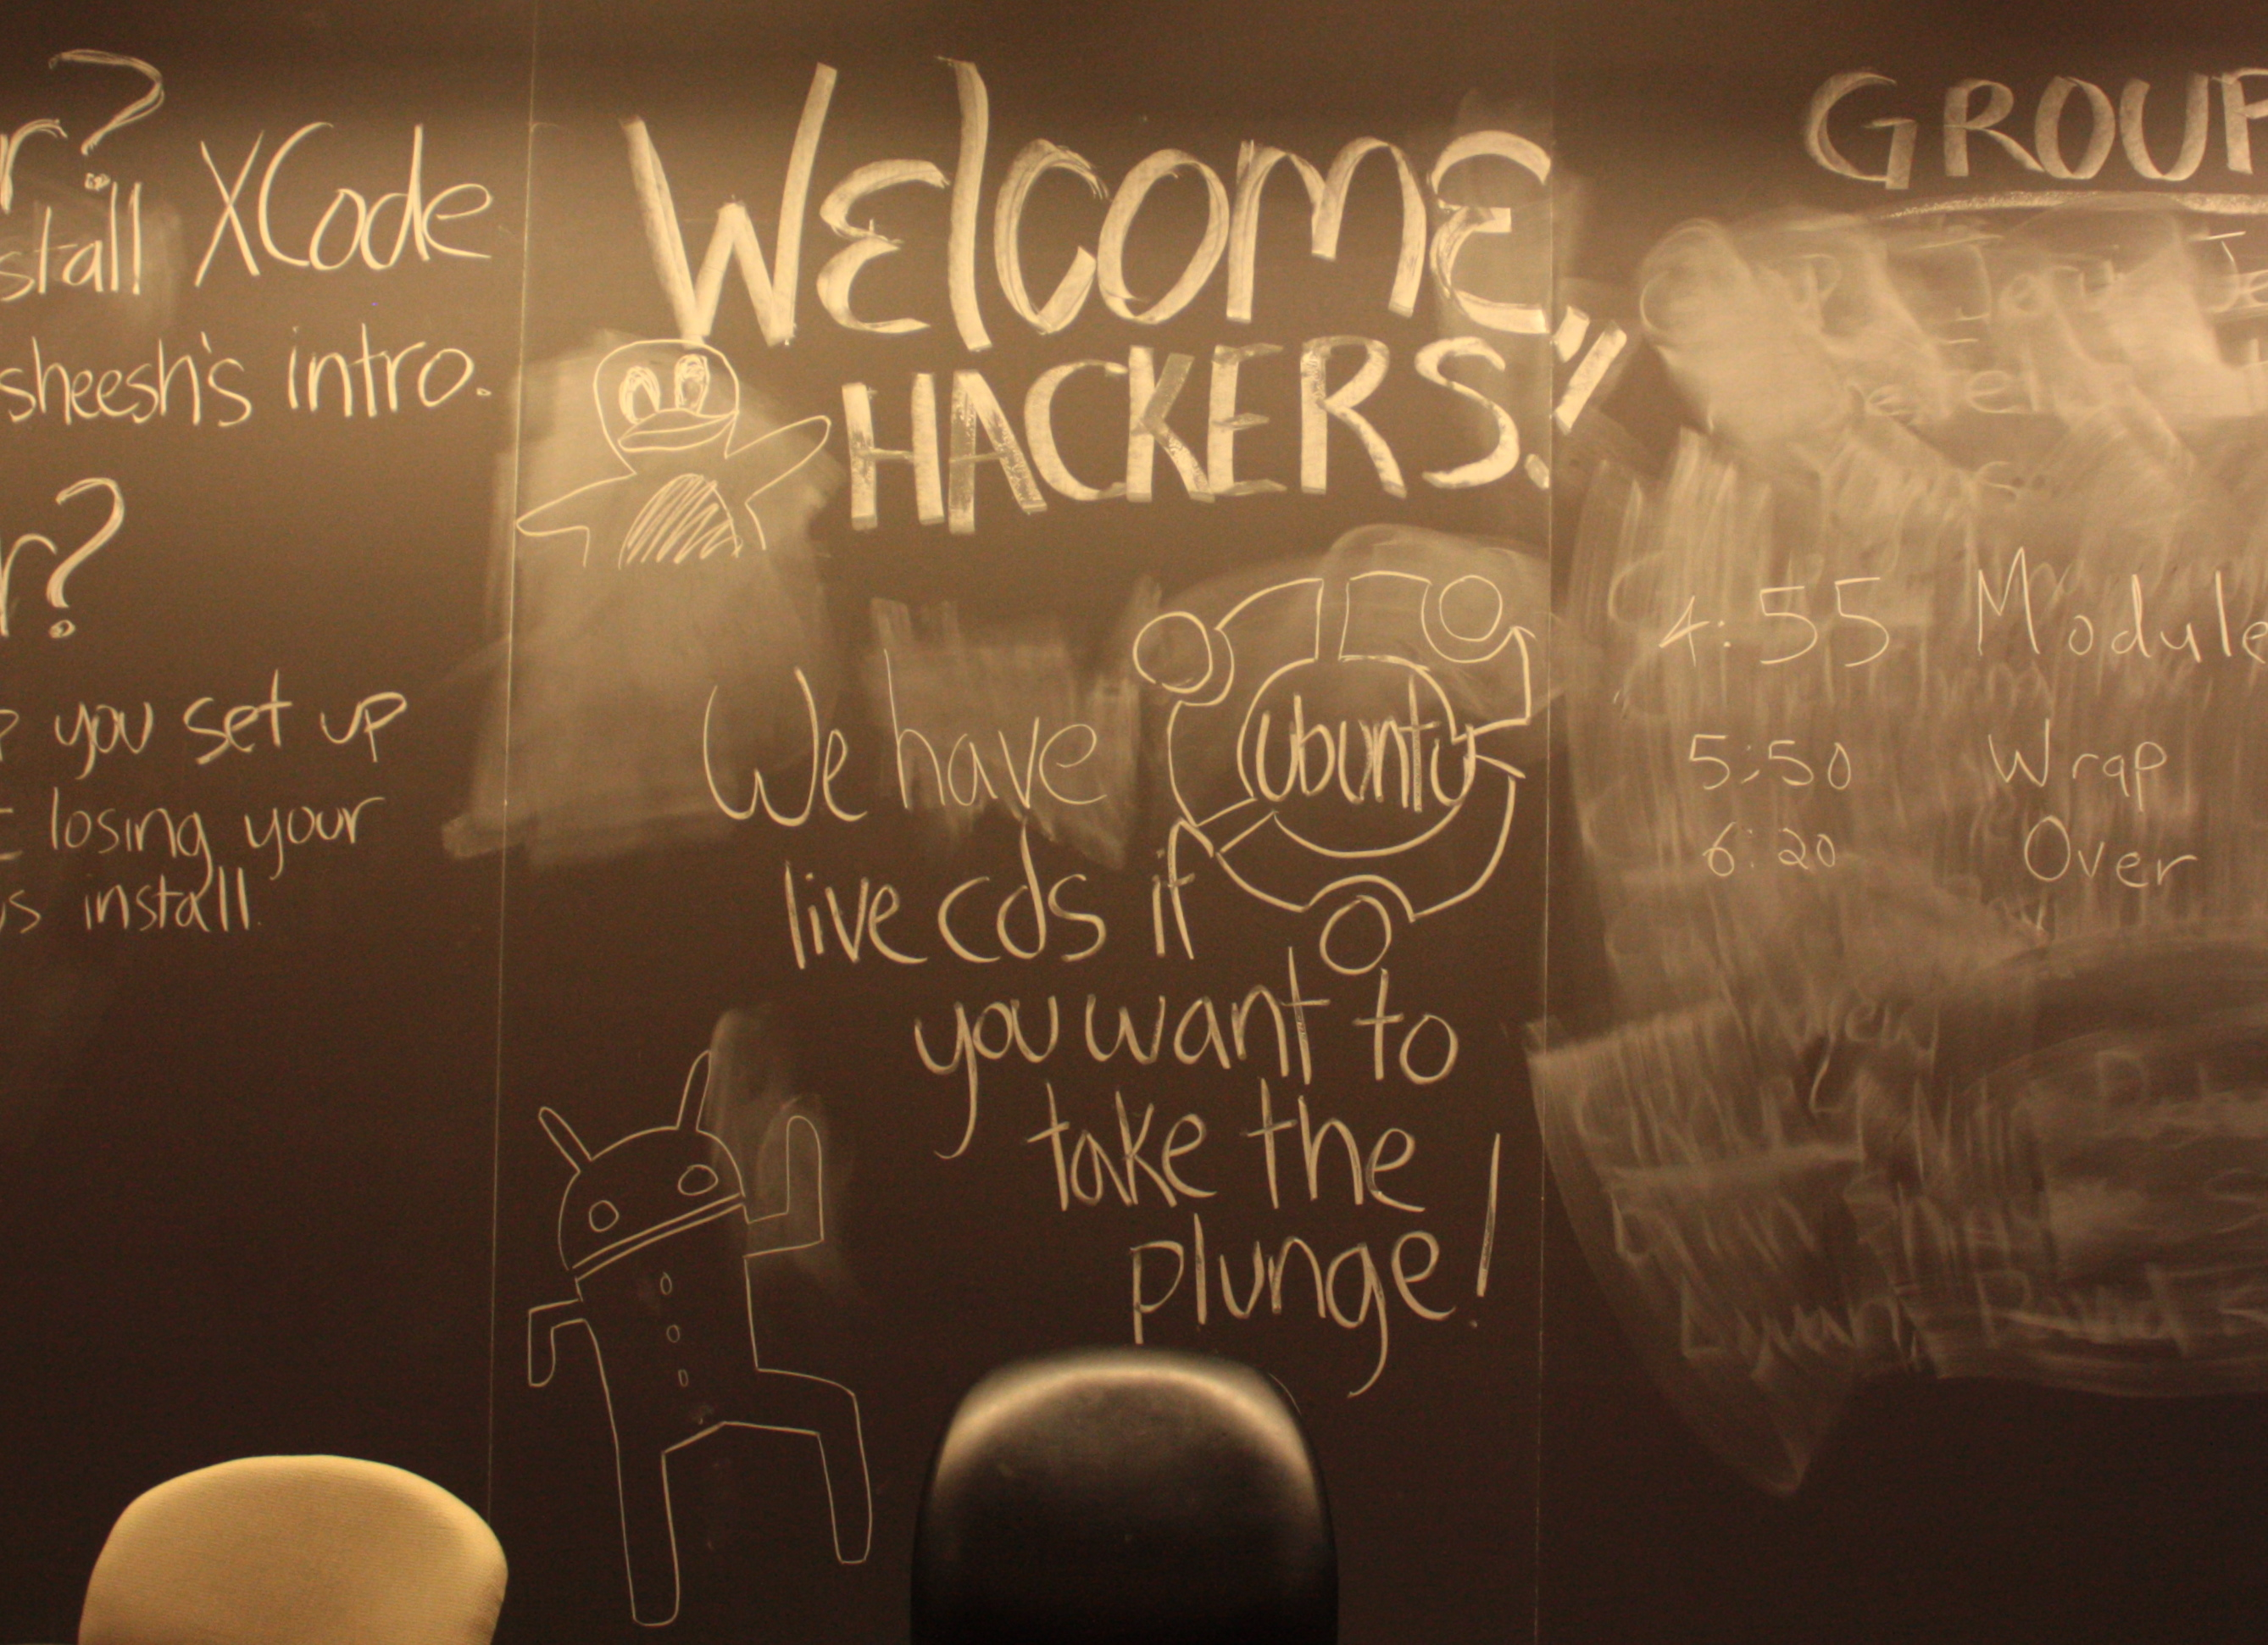 r?
stall XCode
sheesh's intro.
r?
you set up
losing your
install.
WElCOmE,
HACKERS!
We have ubuntu
live cds if
you want to
take the
plunge!
GROUP
4:55 Module
5:50 Wrap
6:20 Over